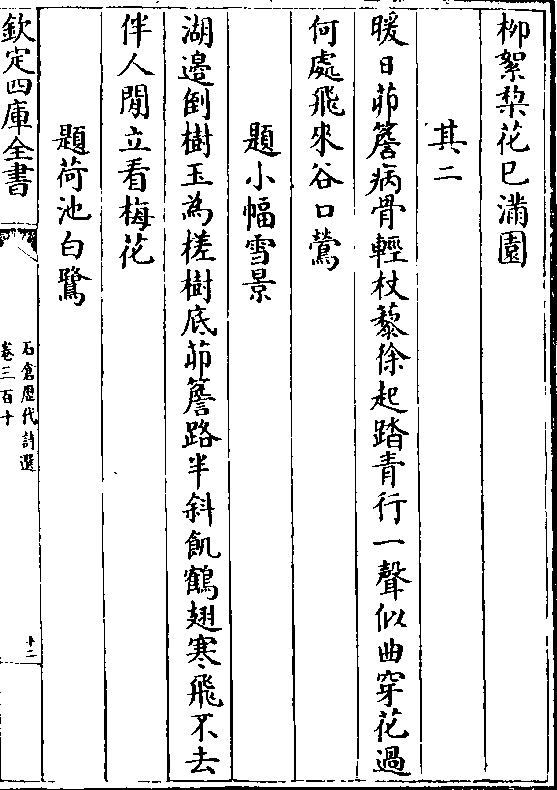 柳絮棃花已滿園
其二
暖日茆簷病骨輕杖藜徐起踏青行一聲似曲穿花過
何處飛來谷口鶯
題小幅雪景
湖邊倒樹玉為槎樹底茆簷路半斜飢鶴翅寒飛不去
伴人閒立看梅花
題荷池白鷺
欽定四庫全書
石倉歷代詩選
卷三百十
十二